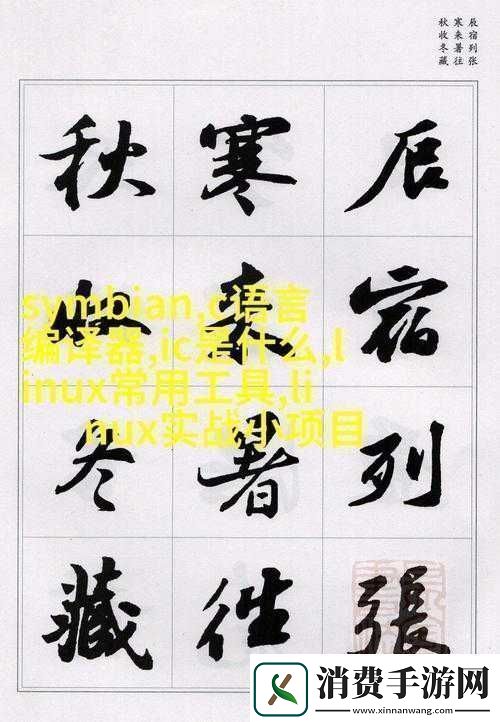 辰宿列张
寒来暑往
秋收冬藏
辰宿列張
寒来暑往
秋收冬藏
symbian,c语言
编译器,ic是什么,l
inux常用工具,li
nux实战小项目
消费手游网
www.xinnanwang.com